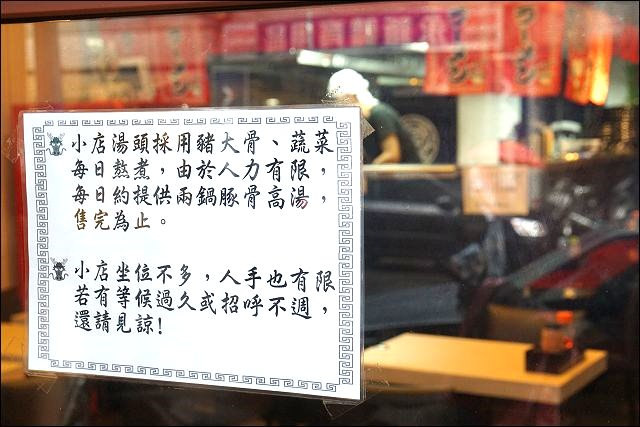 小店湯頭採用豬大骨、蔬菜
每日熬煮，由於人力有限，
每日約提供兩鍋豚骨高湯，
售完為止。
小店坐位不多，人手也有限
若有等候過久或招呼不週，
還請見諒!
ラーメン
ラーメン